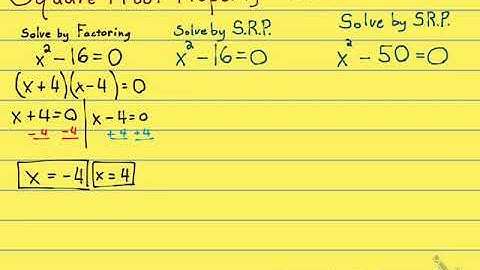 Square Root Property
Solve by Factoring
x² - 16 = 0
(x + 4)(x - 4) = 0
x + 4 = 0 | x - 4 = 0
-4 -4 +4 +4
x = -4 x = 4
Solve by S.R.P.
x² - 16 = 0
Solve by S.R.P.
x² - 50 = 0